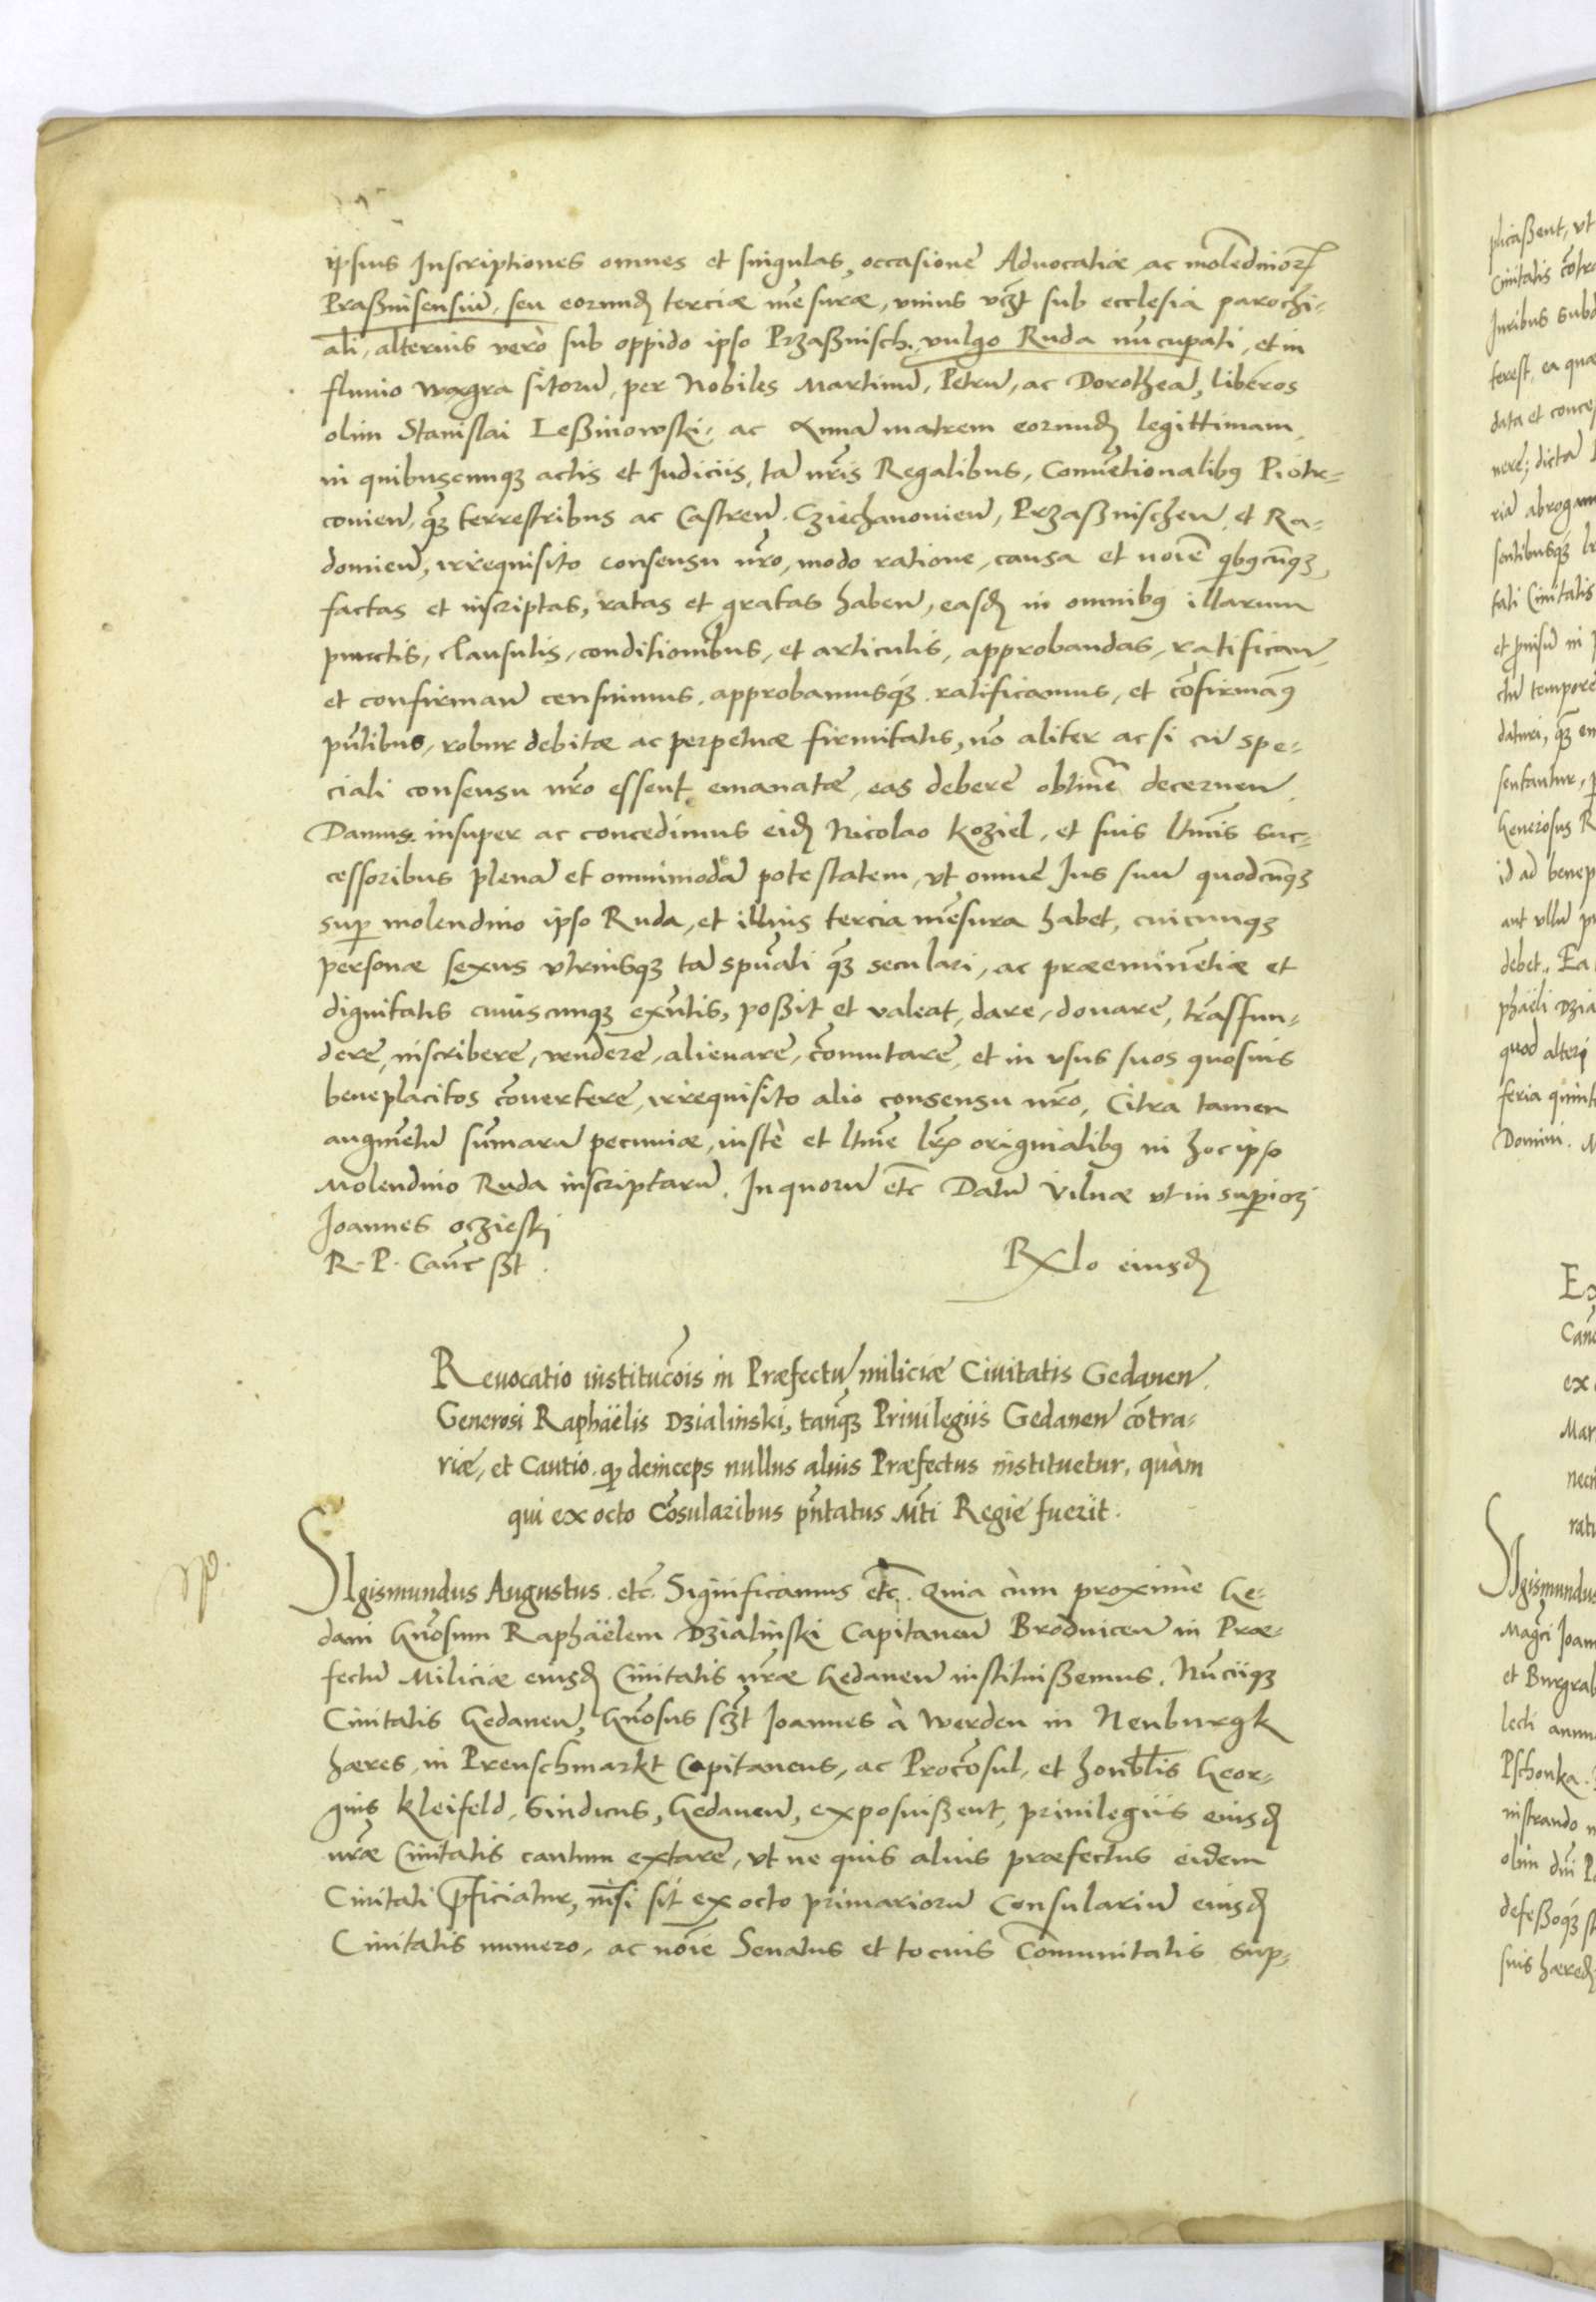 ipsius Inscriptiones omnes et singulas, occasione Aduocatiæ ac molēdinorꝝ
Praßnisensiū, seu eorundꝫ terciæ mēsuræ, vnius vcꝫt sub ecclesia parochi-
ali, alterius verò sub oppido ipso Przaßnisch, vulgo Ruda nūcupati, et in
fluuio Wægra sitorū, per Nobiles Martinū, Petrū, ac Dorotheā, liberos
olim Stanislai Leßniowski, ac Annā matrem eorundꝫ legittimam,
in quibuscunqꝫ actis et Iudiciis, tā nr̄is Regalibus, Conuētionalibꝰ Piotr-
couieñ, qꝫ terrestribus ac Castreñ. Cziechanouieñ, Przaßnischeñ, et Ra-
domieñ, irrequisito consensu nr̄o, modo ratione, causa et noīe qbꝰcūqꝫ,
factas et inscriptas, ratas et gratas habeñ, easdꝫ in omnibꝰ illarum
punctis, clausulis, conditionibus, et articulis, approbandas, ratificañ,
et confirmañ censuimus, approbamusqꝫ ratificamus, et cōfirmamꝰ
pn̄tibus, robur debitæ ac perpetuæ firmitatis, nō aliter ac si cū spe-
ciali consensu nr̄o essent emanatæ, eas debere obtinē decerneñ.
Damus insuper ac concedimus eidꝫ Nicolao Koziel, et suis ltmīs suc-
cessoribus plenā et omnimodā potestatem, vt omne Ius suū quodcūqꝫ
sup molendino ipso Ruda, et illius tercia mēsura habet, cuicunqꝫ
personæ sexus vtriusqꝫ tā spūali qꝫ seculari, ac præeminētiæ et
dignitatis cuiuscunqꝫ exn̄tis, poßit et valeat, dare, donare, trāsfun-
dere, inscribere, vendere, alienare, cōmutare, et in vsus suos quosuis
beneplacitos cōuertere, irrequisito alio consensu nr̄o, Citra tamen
augmētū sūmarū pecuniæ, iustè et ltmē lr̄is originalibꝰ in hoc ipso
Molendino Ruda inscriptarū. In quorū etc̄ Datū Vilnæ vt in supiori
Ioannes oczieski
R. P. Canc̄ sßt.
Rxlo eiusdꝫ
Reuocatio institucōis in Præfectū miliciæ Ciuitatis Gedaneñ.
Generosi Raphaëlis Dzialinski, tanqꝫ Priuilegiis Gedaneñ cōtra-
riæ, et Cautio qꝙ deinceps nullus alius Præfectus instituetur, quàm
qui ex octo Cōsularibus pn̄tatus Mti Regiæ fuerit.
SIgismundus Augustus. etc̄. Significamus etc̄. Quia cùm proximè Ge-
dani Gn̄osum Raphaëlem Dzialinski Capitaneū Brodniceñ in Præ-
fectū Miliciæ eiusdꝫ Ciuitatis nr̄æ Gedaneñ instituißemus. Nūciiqꝫ
Ciuitatis Gedaneñ, Gn̄osus scꝫt Ioannes à Werden in Neuburgk
hæres, in Preuschmarkt Capitaneus, ac Procōsul, et honbl̄is Geor-
gius Kleifeld, Sindicus, Gedaneñ, exposuißent, priuilegiis eiusdꝫ
nr̄æ Ciuitatis cautum extare, vt ne quis alius præfectus eidem
Ciuitati p̄ficiatur, nisi sit ex octo primariorū Consulariū eiusdꝫ
Ciuitatis numero, ac noīe Senatus et tocius Cōmunitatis sup-